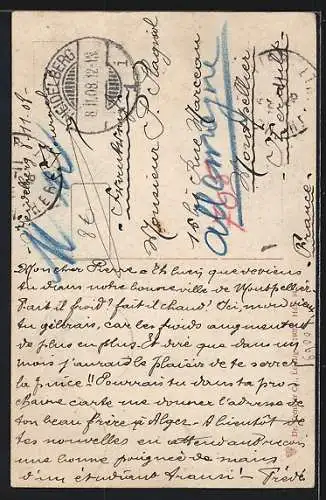 HEIDELBERG
8.11.08.12-1
Monsieur P. Magnol
18 bis Rue Marceau
Montpellier
Hérault
France
Allemagne
Mon cher Pierre = Eh bien, que deviens
tu dans notre bonne ville de Montpellier
Fait il froid? fait il chaud? Ici, mon vieux
tu gèlerais, car les froids augmentent
de plus en plus. Et dire que dans un
mois j'aurai le plaisir de te serrer
la pince!! Pourrais tu dans ta pro-
chaine carte me donner l'adresse de
ton beau frère à Alger. A bientôt de
tes nouvelles en attendant reçois
une bonne poignée de mains
d'un étudiant transi! = Frédé